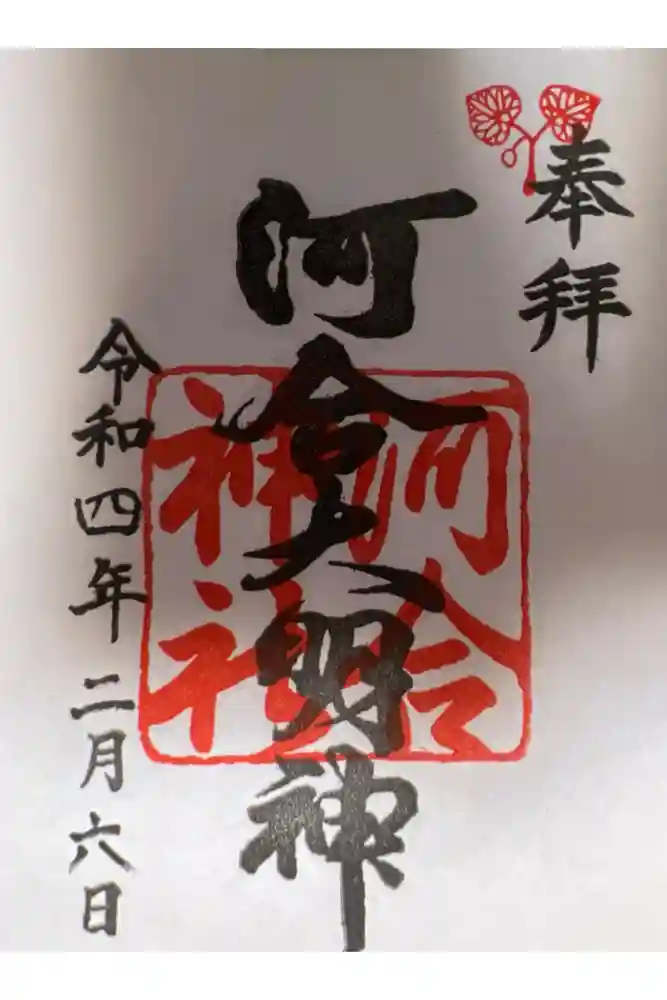 奉拝
河合大明神
河合神社
令和四年二月六日